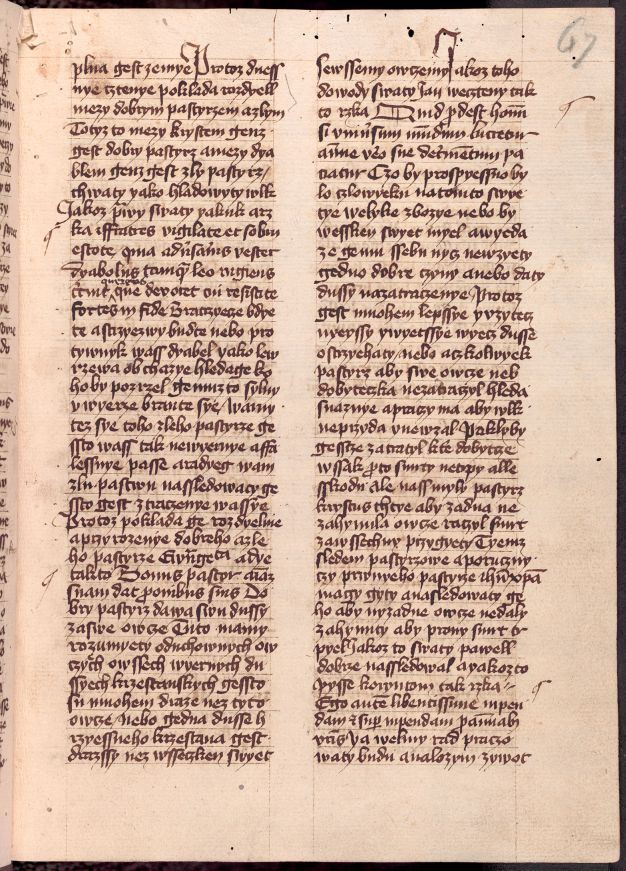 67
plna gest zemye Protoz dness
nye cztenye poklada rozdyell
mezy dobrym pastyrzem a zlym
Totyz to mezy krystem genz
gest dobry pastyrz a mezy dya
blem genz gest zly pastyrz
chwaty yako hladowyty wlk
Jakoz prwy swaty
ka ffratres vigilate et sobrii
estote quia adusarius vester
dyabolus tamq leo rugiens
circuit querens que deuoret cui resistite
fortes in fide Bratrzyecze bdye
te a strzyezwy budte nebo pro
tywnyk wass dyabel yako lew
rzewa obchazye hledage ko
ho by pozrzel gemuzto sylny
v wyerze brante sye wamy
tez sye toho zleho pastyrze ge
ssto wass tak newyernye a ffa
lessnye passe a radyeg wam
zlu pastwu nassledowaty ge
ssto gest ztraczenye wassye
Protoz poklada ge rozdyelnye
a przyrozenye dobreho a zle
ho pastyrze a dye
takto Bonus pastor aiaz
suam dat pro ouibus suis Do
bry pastyrz dawa swu dussy
za swe owcze Tuto mamy
rozumyety o duchownych ow
czych o wssech wyernych du
ssyech krzestanskych gessto
su mnohem draze nez tyto
owcze nebo gedna dusse h
rzyessneho krzestana gest
drazssy nez wsseczken swyet
sewssemy owczemy Jakoz toho
dowody swaty Jan weczteny tak
to rzka Quid prodest homi
si vniuersum mundum lucretur
anime vero sue detrimentum pa
ciatur Czo by prospyessno by
lo czlowyeku na tomto swye
tye welyke zbozye nebo by
wessken swyet myel a wyeda
ze gemu sseben nycz newzyety
gedno dobre czyny a nebo daty
dussy na zatraczenye Protoz
gest mnohem lepssye vzytecz
nyeyssy y wyetssye wyecz dusse
ostrzyehaty nebo aczkolywyek
pastyrz aby swe owcze neb
dobyteczka nezatratyl hleda
snaznye a praczy ma aby wlk
neprzyda vnewzal Pakly by
gessze zatratyl kte dobytcze
wssak proto smrty netrpy alle
sskodu Ale nass myly pastyrz
krystus chtye aby zadna ne
zahynula owcze raczyl smrt
za wssechny przygyety Tyemz
sledem pastyrzowe a poruczny
czy prawneho pastyrze ihu xpa
magy gyty a nasledowaty ge
ho aby nyzadne owcze nedaly
zahynuty aby pro ny smrt tr
pyel jakoz to swaty pawell
dobrze nassledowal a yakozto
pysse korintom tak rzka
Ego autem libentissime inpen
dam et super inpendam pro aniab
vestris Ja welmy rad praczo
waty budu a nalozym zywot